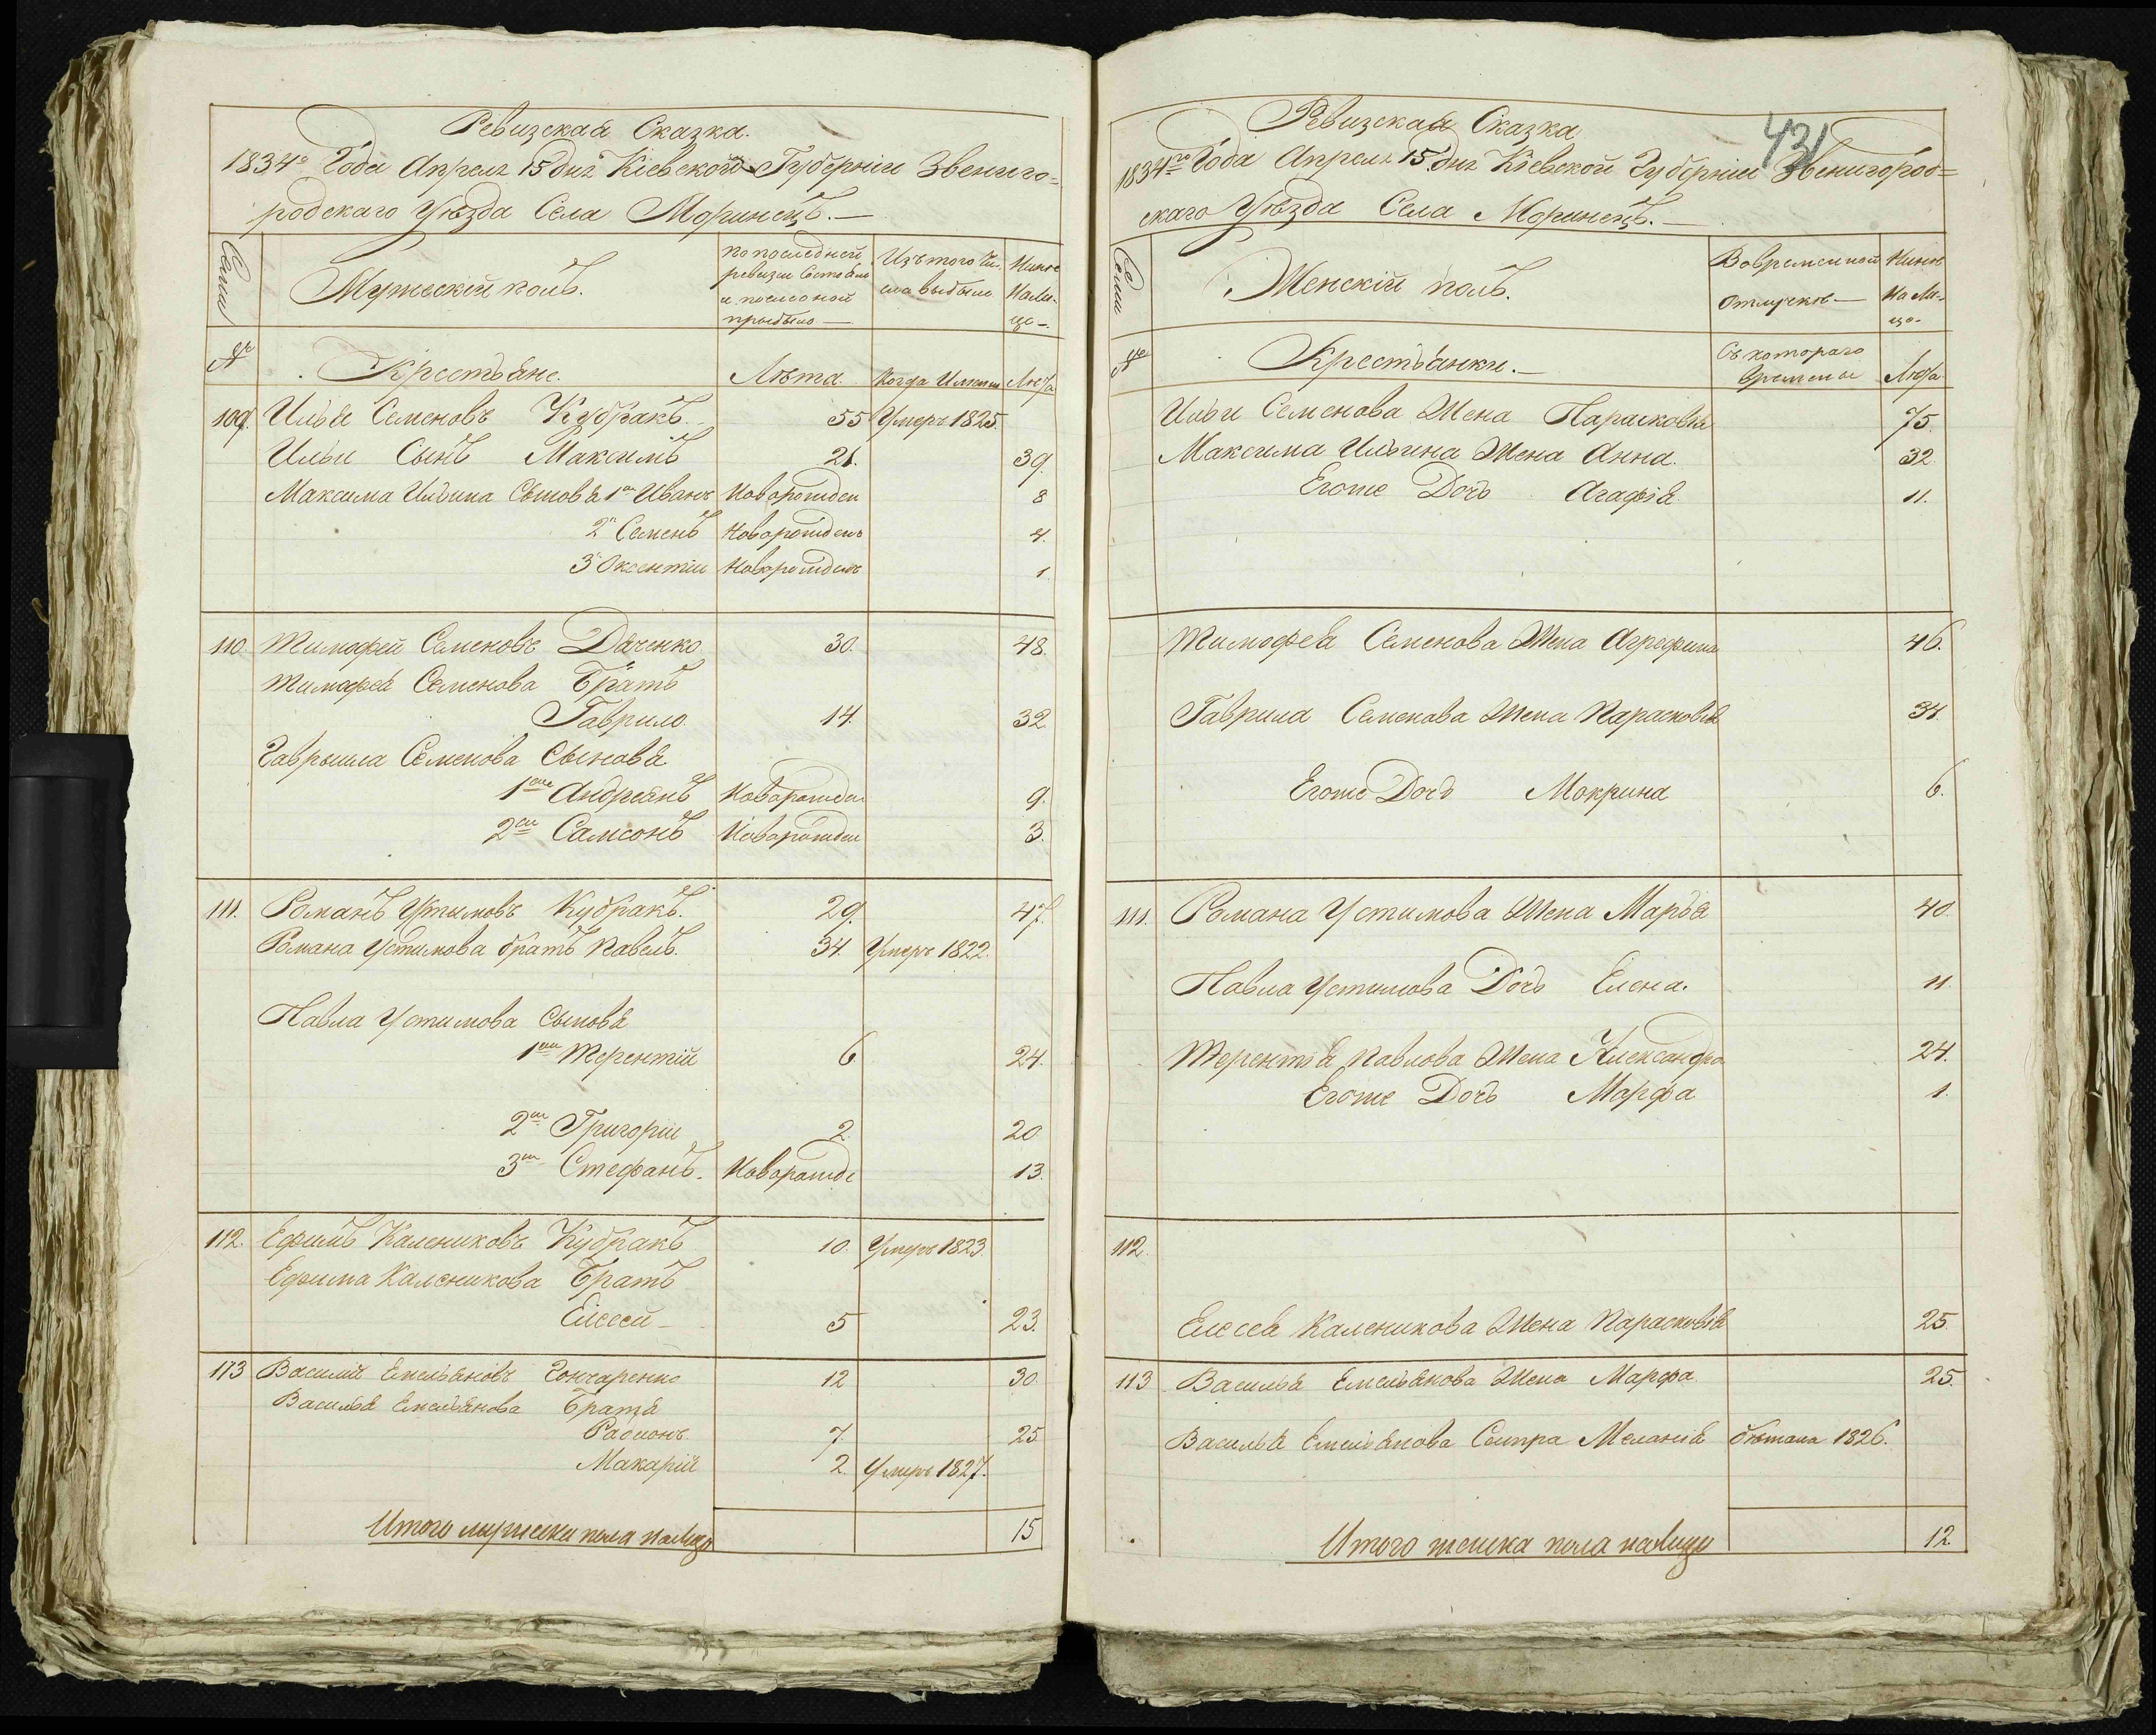 Ревизская Сказка.
1834го Года Апреля 15 дня Кіевской Губерніи Звениго=
родскаго Уѣзда Села Моринецъ.—
Семьи
Мужескій полъ.
по последней ревизіи состояло и после оной прибыло —
Изъ того числа выбыло
Нынѣ На лицо —
№
Крестьяне.
Лѣта.
Когда Именно
Лѣта
109. Илья Семеновъ Кубракъ. 55 Умеръ 1825.
Ильи Сынъ Максимъ 21. 39.
Максима Ильина Сыновья 1й Иванъ Новорожден 8
2й Семенъ Новорожденъ 4.
3й Оксентии Новорожденъ 1.
110. Тимофей Семеновъ Дяченко 30. 48.
Тимофея Семенова Братъ
Гаврило 14. 32
Гаврыила Семенова Сыновья
1ый Андреянъ Новорожден 9.
2ой Самсонъ Новорожден 3.
111. Романъ Устимовъ Кубракъ. 29. 47.
Романа Устимова братъ Павелъ. 34. Умеръ 1822.
Павла Устимова Сыновья
1ый Терентій 6 24.
2ой Григоріи 2. 20
3ий Стефанъ. Новорожде 13.
112. Ефимъ Калениковъ Кубракъ 10. Умеръ 1823.
Ефима Каленикова Братъ
Елесей 5 23.
113 Василій Емельяновъ Гончаренко 12 30.
Василья Емельянова Братья
Радионъ 7. 25
Макарій 2. Умеръ 1827.
Итого мужеска пола налицо 15
431
Ревизская Сказка
1834го Года Апреля 15 дня Кіевской Губерніи Звенигород=
скаго Уѣзда Села Моринецъ.—
Семьи
Женскій полъ.
Во временной отлучкѣ —
Нынѣ На Лицо.
№
Крестьянки.—
Съ котораго времени
Лѣта
Ильи Семенова Жена Парасковья 75.
Максима Ильина Жена Анна. 32.
Егоже Дочь Агафія 11.
Тимофея Семенова Жена Агрефина 46.
Гаврила Семенова Жена Парасковья 34.
Егоже Дочь Мокрина 6.
111. Романа Устимова Жена Марья 40.
Павла Устимова Дочь Елена. 11.
Терентья Павлова Жена Александра 24.
Егоже Дочь Марфа 1.
112.
Елесея Каленикова Жена Парасковья 25.
113 Василья Емельянова Жена Марфа 25.
Василья Емельянова Сестра Меланія бѣжала 1826.
Итого женска пола налицо 12